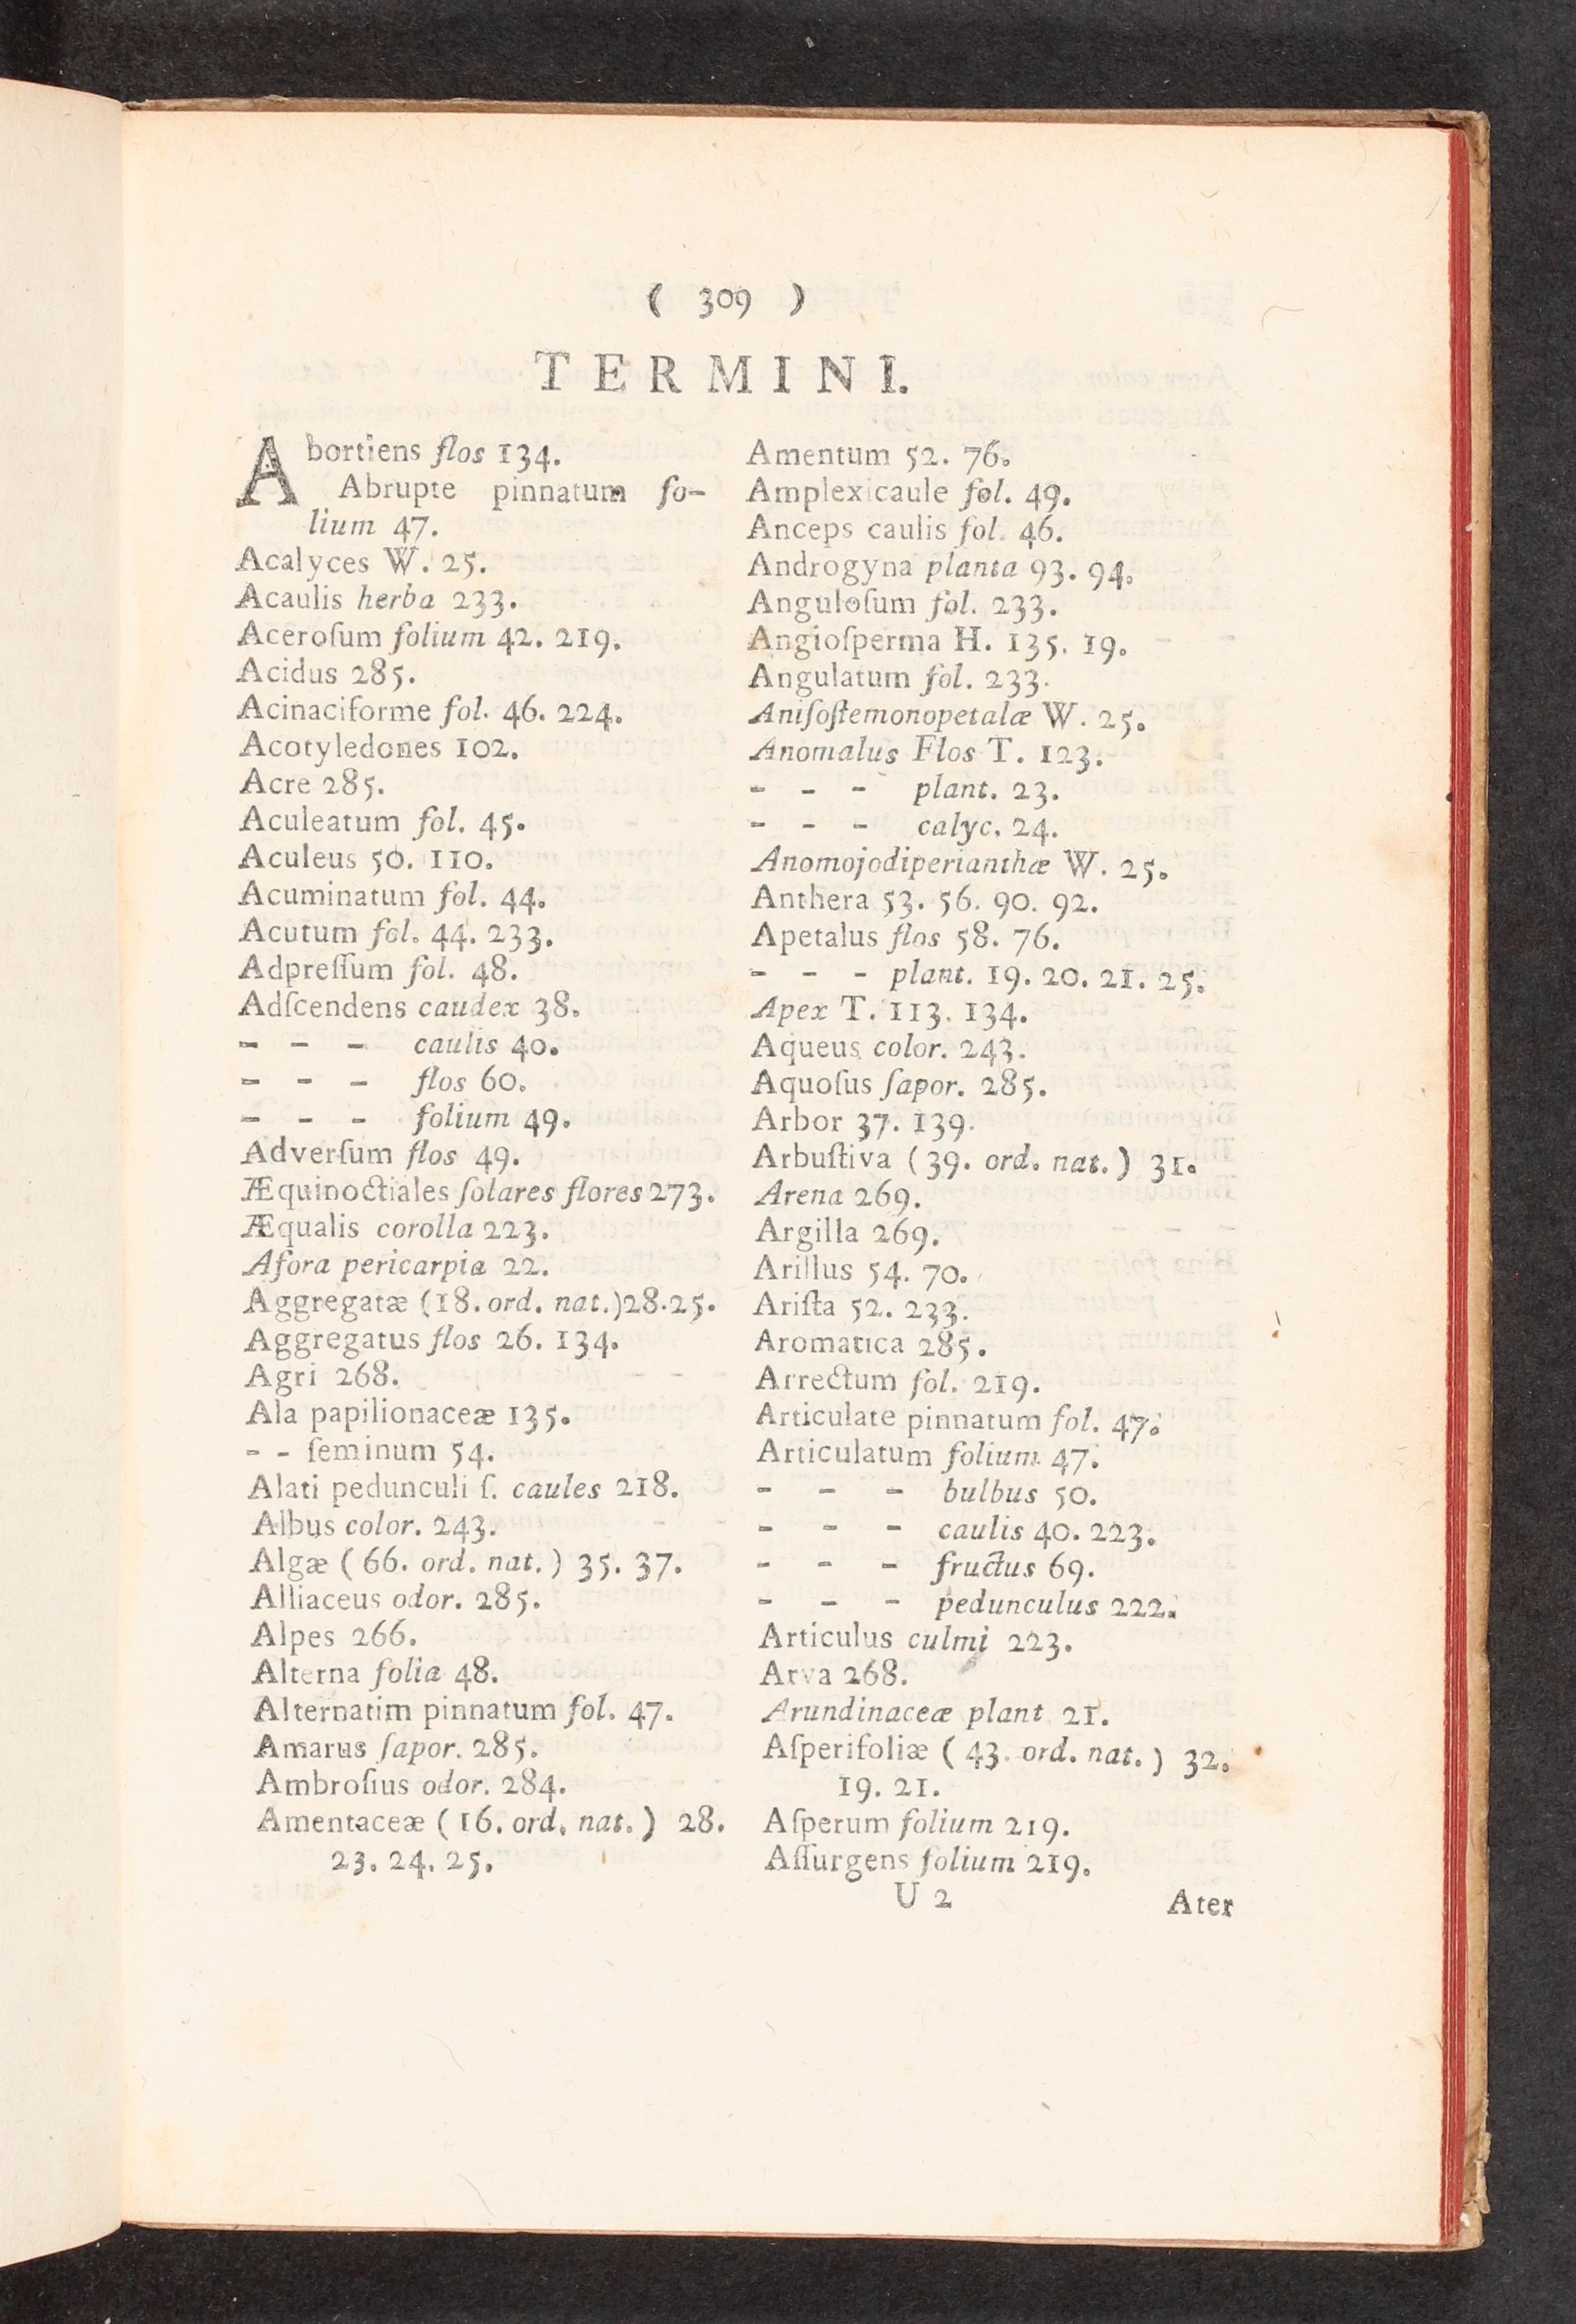 ( 309 )
TERMINI.
Abortiens flos 134.
Abrupte pinnatum fo-
lium 47.
Acalyces W. 25.
Acaulis herba 233.
Aceroſum folium 42. 219.
Acidus 285.
Acinaciforme fol. 46. 224.
Acotyledones 102.
Acre 285.
Aculeatum fol. 45.
Aculeus 50. 110.
Acuminatum fol. 44.
Acutum fol. 44. 233.
Adpreſſum fol. 48.
Adſcendens caudex 38.
- - - caulis 40.
- - - flos 60.
- - - folium 49.
Adverſum flos 49.
Æquinoctiales ſolares flores 273.
Æqualis corolla 223.
Afora pericarpia 22.
Aggregatæ (18. ord. nat.) 28. 25.
Aggregatus flos 26. 134.
Agri 268.
Ala papilionaceæ 135.
- - ſeminum 54.
Alati pedunculi ſ. caules 218.
Albus color. 243.
Algæ (66. ord. nat.) 35. 37.
Alliaceus odor. 285.
Alpes 266.
Alterna folia 48.
Alternatim pinnatum fol. 47.
Amarus ſapor. 285.
Ambroſius odor. 284.
Amentaceæ (16. ord. nat.) 28.
23. 24. 25.
Amentum 52. 76.
Amplexicaule fol. 49.
Anceps caulis fol. 46.
Androgyna planta 93. 94.
Anguloſum fol. 233.
Angioſperma H. 135. 19.
Angulatum fol. 233.
Aniſoſtemonopetalæ W. 25.
Anomalus Flos T. 123.
- - - plant. 23.
- - - calyc. 24.
Anomojodiperianthæ W. 25.
Anthera 53. 56. 90. 92.
Apetalus flos 58. 76.
- - - plant. 19. 20. 21. 25.
Apex T. 113. 134.
Aqueus color. 243.
Aquoſus ſapor. 285.
Arbor 37. 139.
Arbuſtiva (39. ord. nat.) 31.
Arena 269.
Argilla 269.
Arillus 54. 70.
Ariſta 52. 233.
Aromatica 285.
Arrectum fol. 219.
Articulate pinnatum fol. 47.
Articulatum folium 47.
- - - bulbus 50.
- - - caulis 40. 223.
- - - fructus 69.
- - - pedunculus 222.
Articulus culmi 223.
Arva 268.
Arundinaceæ plant 21.
Aſperifoliæ (43. ord. nat.) 32.
19. 21.
Aſperum folium 219.
Aſſurgens folium 219.
U 2 Ater